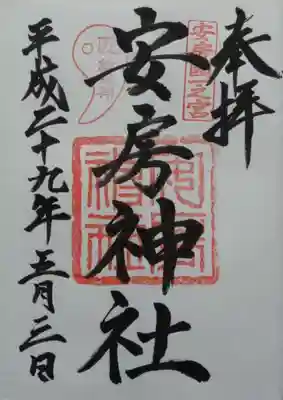 奉拝
安房國一之宮
安房神社
平成二十九年三月三日